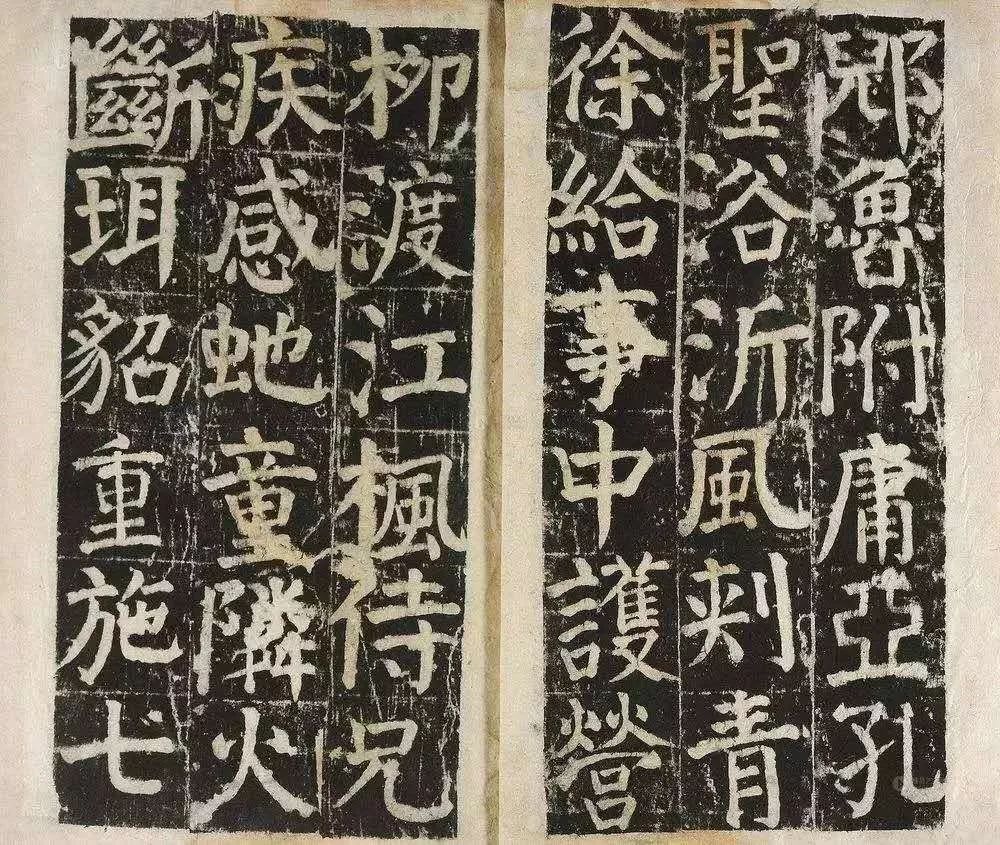 郳魯附庸亞孔
聖浴沂風刾青
徐給事中護營
柳渡江楓侍兄
疾感虵童隣火
斷珥貂重施七